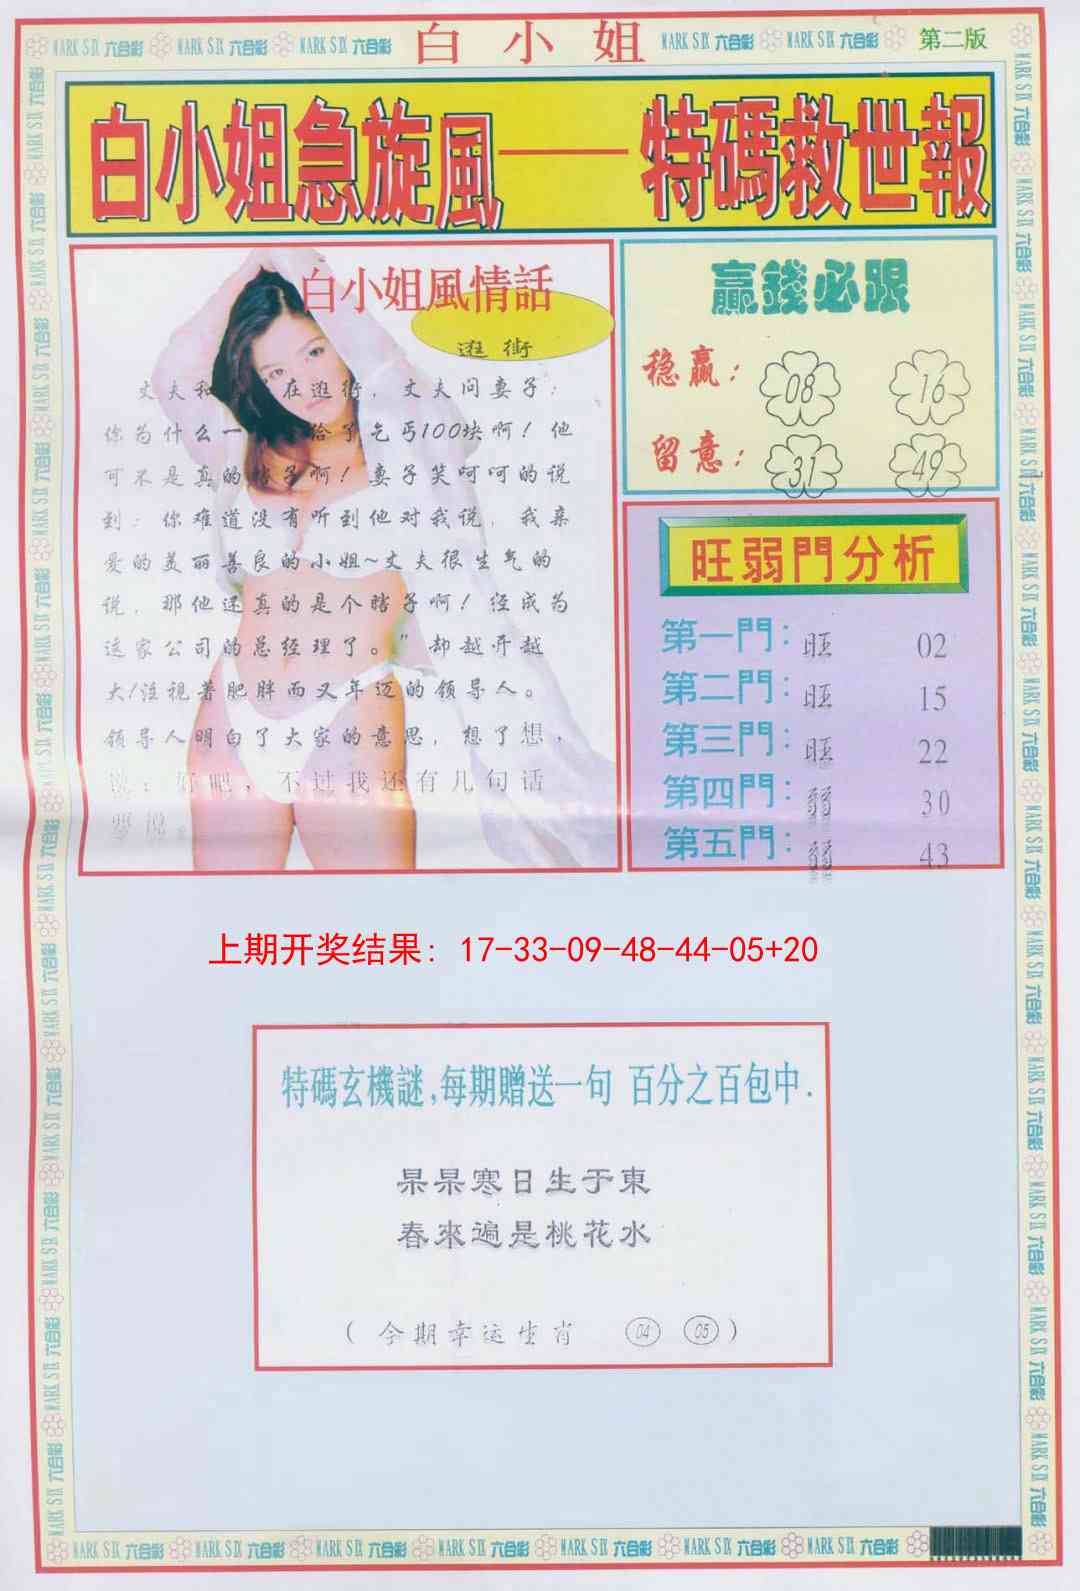 MARK SIX 六合彩 MARK SIX 六合彩 MARK SIX 六合彩 白小姐 MARK SIX 六合彩 MARK SIX 六合彩 第二版
白小姐急旋風——特碼救世報
白小姐風情話
逛街
丈夫和 在逛街，丈夫问妻子：
你为什么一 给了乞丐100块啊！他
可不是真的瞎子啊！妻子笑呵呵的说
到：你难道没有听到他对我说，我亲
爱的美丽善良的小姐~丈夫很生气的
说，那他还真的是个瞎子啊！经成为
这家公司的总经理了。"却越开越
大!注视着肥胖而又年迈的领导人。
领导人明白了大家的意思，想了想，
说：好吧，不过我还有几句话
要说。
贏錢必跟
稳赢： 08 16
留意： 31 49
旺弱門分析
第一門：旺 02
第二門：旺 15
第三門：旺 22
第四門：弱 30
第五門：弱 43
上期开奖结果：17-33-09-48-44-05+20
特碼玄機謎,每期贈送一句 百分之百包中.
杲杲寒日生于東
春來遍是桃花水
（今期幸运生肖 04 05）
MARK SIX 六合彩 MARK SIX 六合彩 MARK SIX 六合彩 MARK SIX 六合彩 MARK SIX 六合彩 MARK SIX 六合彩 MARK SIX 六合彩